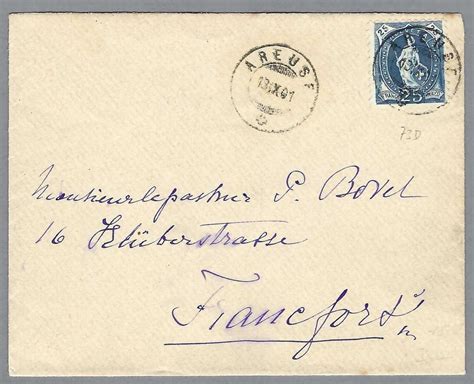 AREUSE
13.X.01
25 25
AREUSE
25
73D
Monsieur le pasteur P. Bovet
16 Klüberstrasse
Francfort